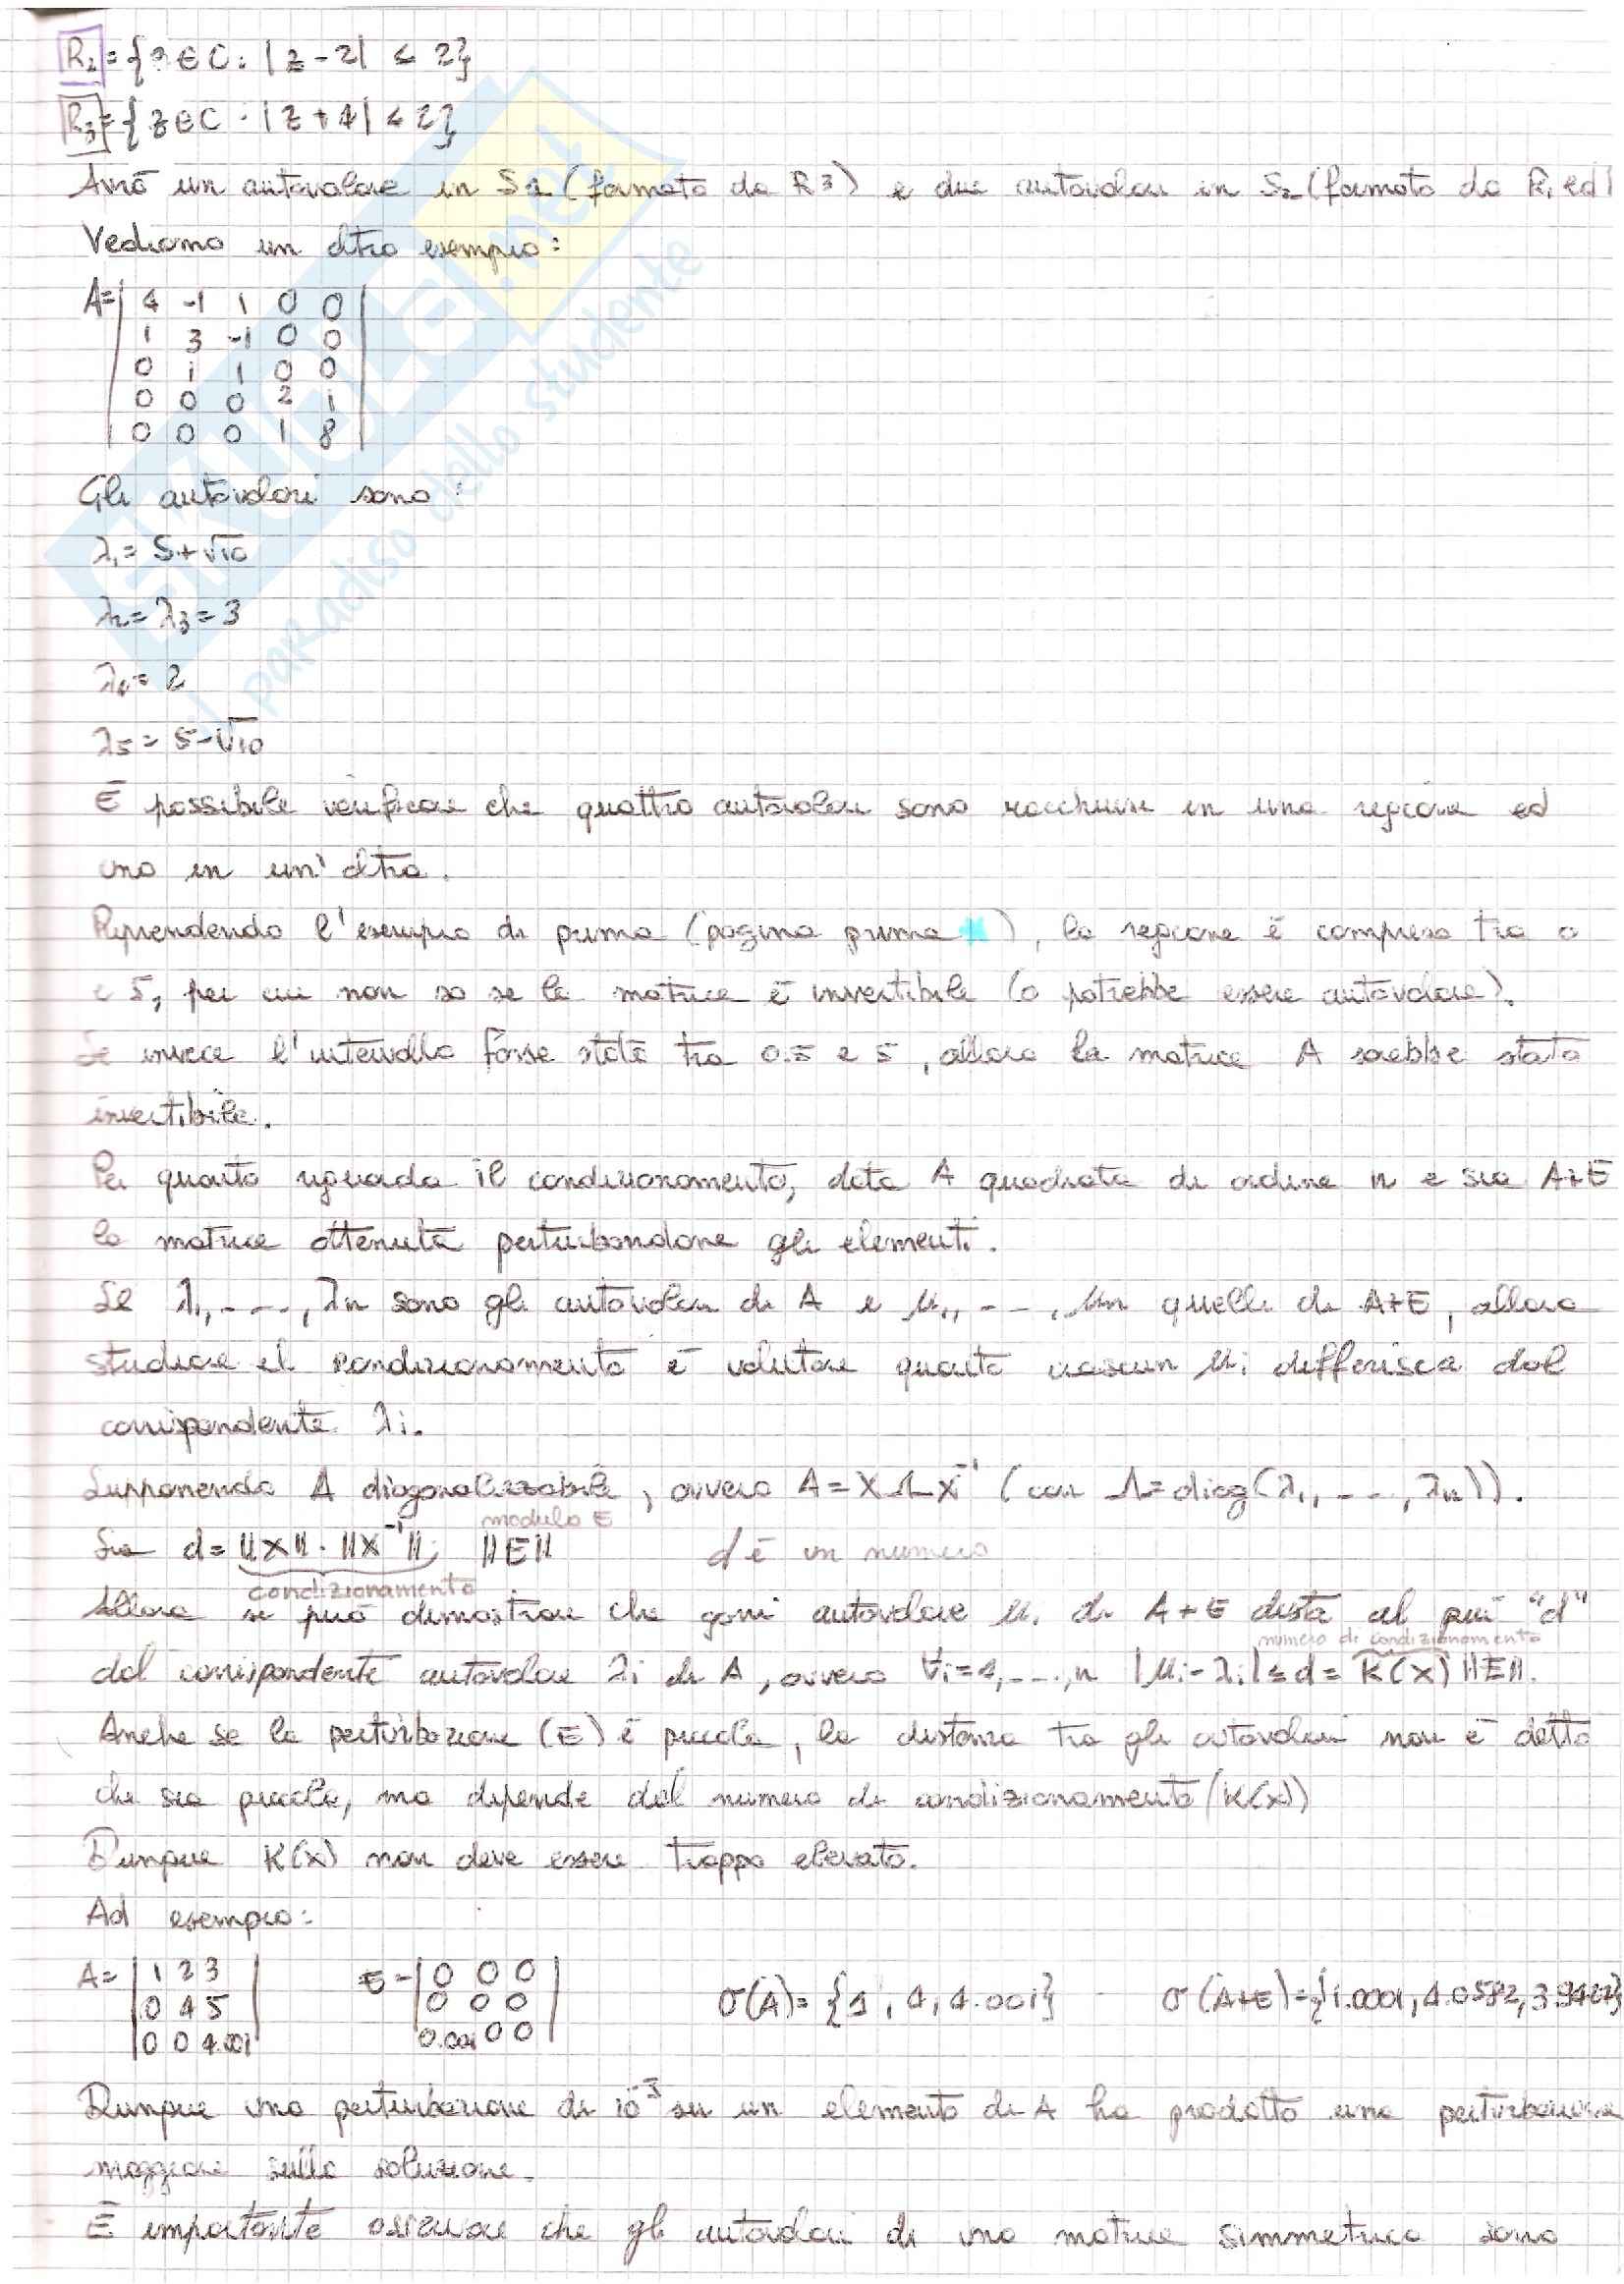 R2 = {z ∈ C : |z - 2| ≤ 2}
R3 = {z ∈ C : |z + 4| ≤ 2}
Avrò un autovalore in S1 (formato da R3) e due autovalori in S2 (formato da R1 ed
Vediamo un altro esempio:
A= | 4 -1 1 0 0 |
| 1 3 -1 0 0 |
| 0 1 1 0 0 |
| 0 0 0 2 1 |
| 0 0 0 1 8 |
Gli autovalori sono:
λ1 = 5+√10
λ2 = λ3 = 3
λ4 = 2
λ5 = 5-√10
È possibile verificare che quattro autovalori sono racchiusi in una regione ed
uno in un'altra.
Riprendendo l'esempio di prima (pagina prima), la regione è compresa tra 0
e 5, per cui non so se la matrice è invertibile (0 potrebbe essere autovalore).
Se invece l'intervallo fosse stato tra 0.5 e 5, allora la matrice A sarebbe stata
invertibile.
Per quanto riguarda il condizionamento, data A quadrata di ordine n e sia A+E
la matrice ottenuta perturbandone gli elementi.
Se λ1, ----, λn sono gli autovalori di A e μ1, --, μn quelli di A+E, allora
studiare il condizionamento è valutare quanto ciascun μi differisca dal
corrispondente λi.
Supponendo A diagonalizzabile, ovvero A = XΛX⁻¹ (con Λ = diag(λ1, ---, λn)).
modulo E
Sia d = ||X|| · ||X⁻¹|| ||E|| d è un numero
condizionamento
Allora si può dimostrare che ogni autovalore μi di A+E dista al più "d"
numero di condizionamento
dal corrispondente autovalore λi di A, ovvero ∀i=1, ---, n |μi - λi| ≤ d = K(X) ||E||.
Anche se la perturbazione (E) è piccola, la distanza tra gli autovalori non è detto
che sia piccola, ma dipende dal numero di condizionamento (K(X))
Dunque K(X) non deve essere troppo elevato.
Ad esempio:
A= | 1 2 3 | E= | 0 0 0 | σ(A) = {1, 4, 4.001} σ(A+E) = {1.0001, 4.0582, 3.9427}
| 0 4 5 | | 0 0 0 |
| 0 0 4.001 | | 0.001 0 0 |
Dunque una perturbazione di 10⁻³ su un elemento di A ha prodotto una perturbazione
maggiore sulla soluzione.
È importante osservare che gli autovalori di una matrice simmetrica sono
SKUOLA.net
il paradiso dello studente